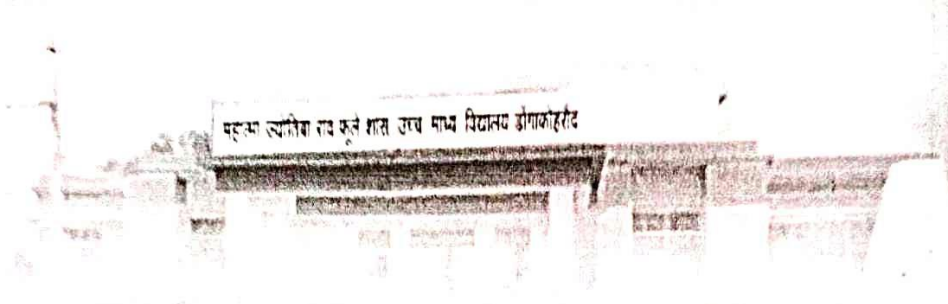 महात्मा ज्योतिबा राव फूले शास उच्च माध्य विद्यालय डोंगाकोहरौद